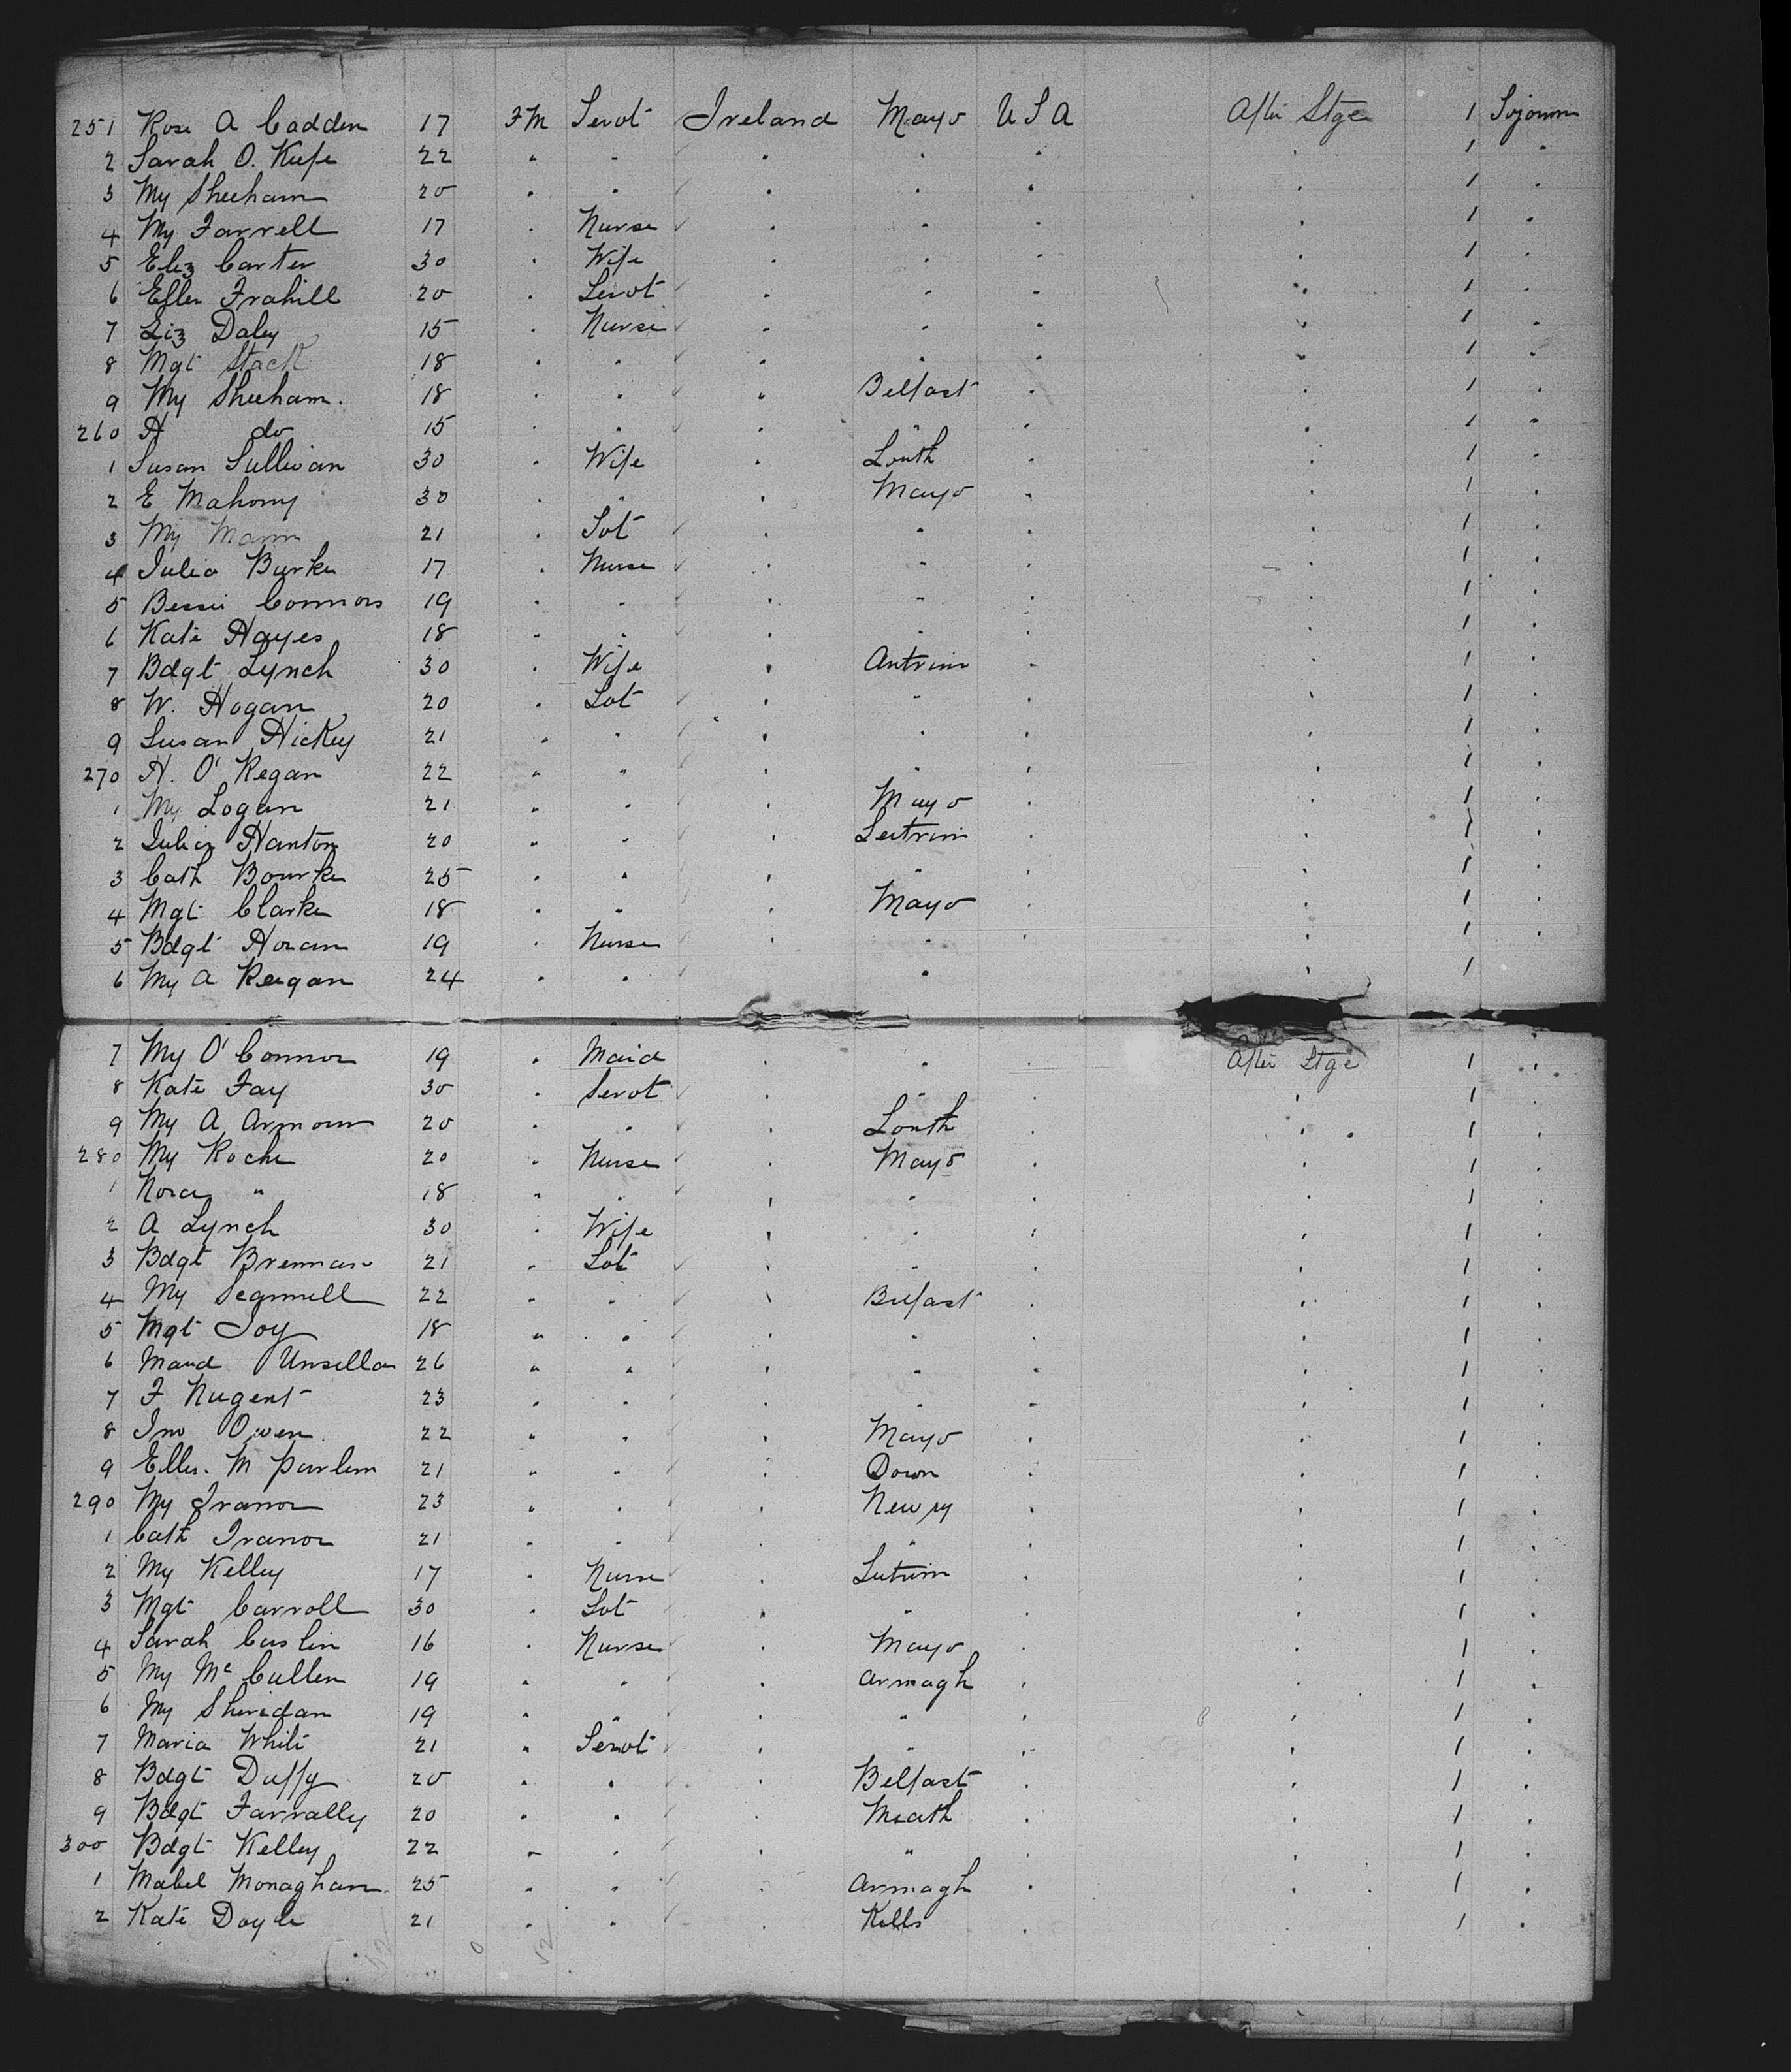 251 Rose A Cadden 17 FM Servt Ireland Mayo U S A After Stge 1 Sojourn
2 Sarah O. Keefe 22 " " " " " " 1 "
3 My Sheeham 20 " " " " " " 1 "
4 My Farrell 17 " Nurse " " " " 1 "
5 Eliz Carter 30 " Wife " " " " 1 "
6 Ellen Frahill 20 " Servt " " " " 1 "
7 Liz Daley 15 " Nurse " " " " 1 "
8 Mgt Stack 18 " " " " " " 1 "
9 My Sheeham. 18 " " " Belfast " " 1 "
260 H do 15 " " " " " " 1 "
1 Susan Sullivan 30 " Wife " Louth " " 1 "
2 E Mahony 30 " " " Mayo " " 1 "
3 My Mann 21 " Svt " " " " 1 "
4 Julia Burke 17 " Nurse " " " " 1 "
5 Bessie Connors 19 " " " " " " 1 "
6 Kate Hayes 18 " " " " " " 1 "
7 Bdgt Lynch 30 " Wife " Antrim " " 1 "
8 W. Hogan 20 " Svt " " " " 1 "
9 Susan Hickey 21 " " " " " " 1 "
270 H. O' Regan 22 " " " " " " 1 "
1 My Logan 21 " " " Mayo " " 1 "
2 Julia Hanton 20 " " " Leitrim " " 1 "
3 Cath Bourke 25 " " " " " " 1 "
4 Mgt Clarke 18 " " " Mayo " " 1 "
5 Bdgt Horan 19 " Nurse " " " " 1 "
6 My A Reegan 24 " " " " 1
7 My O' Connor 19 " Maid " " " After Stge 1 "
8 Kate Fay 30 " Servt " " " " 1 "
9 My A Armour 20 " " " Louth " " 1 "
280 My Roche 20 " Nurse " Mayo " " 1 "
1 Nora " 18 " " " " " " 1 "
2 A Lynch 30 " Wife " " " " 1 "
3 Bdgt Brennan 21 " Svt " " " " 1 "
4 My 22 " " " Belfast " " 1 "
5 Mgt Joy 18 " " " " " " 1 "
6 Maud 26 " " " " " " 1 "
7 F Nugent 23 " " " " " " 1 "
8 Jno Owen 22 " " " Mayo " " 1 "
9 Ellen M Parlem 21 " " " Down " " 1 "
290 My Tranor 23 " " " Newry " " 1 "
1 Cath Tranor 21 " " " " " " 1 "
2 My Kelley 17 " Nurse " Leitrim " " 1 "
3 Mgt Carroll 30 " Svt " " " " 1 "
4 Sarah Caslin 16 " Nurse " Mayo " " 1 "
5 My Mc Cullen 19 " " " Armagh " " 1 "
6 My Sheridan 19 " " " " " " 1 "
7 Maria White 21 " Servt " " " " 1 "
8 Bdgt Duffy 20 " " " Belfast " " 1 "
9 Bdgt Farrally 20 " " " Meath " " 1 "
300 Bdgt Kelley 22 " " " " " " 1 "
1 Mabel Monaghan 25 " " " Armagh " " 1 "
2 Kate Doyle 21 " " " Kells " " 1 "